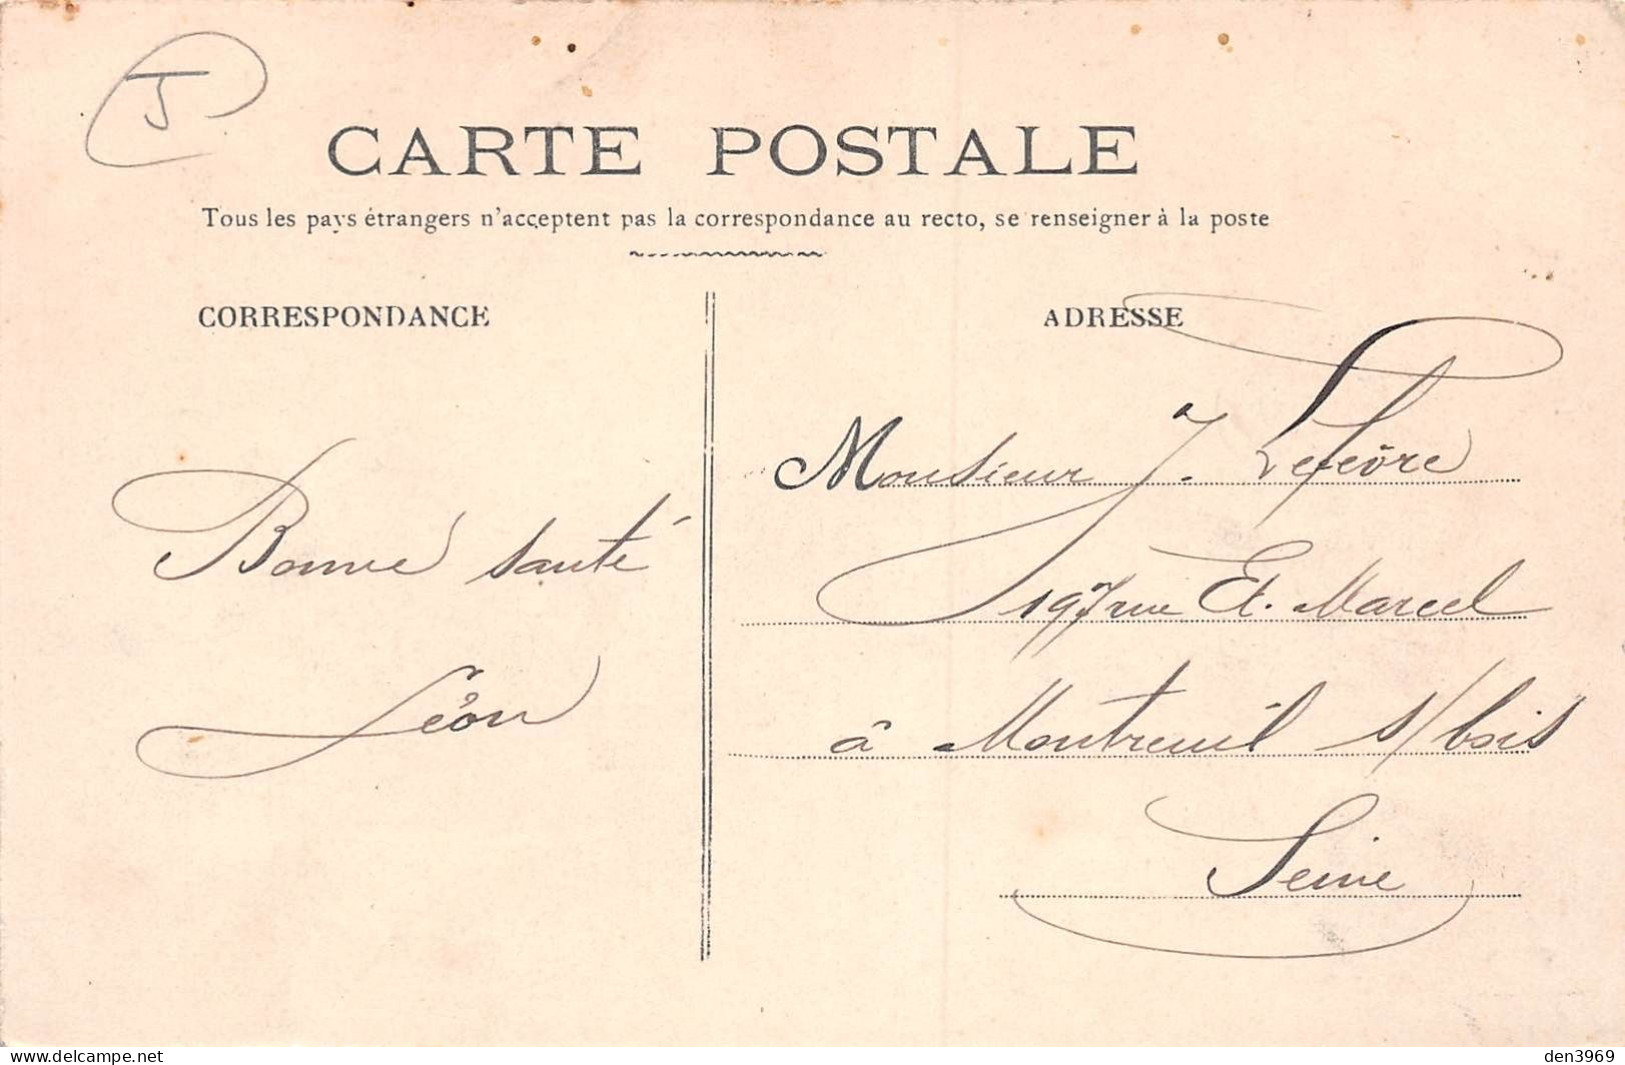 J
CARTE POSTALE
Tous les pays étrangers n'acceptent pas la correspondance au recto, se renseigner à la poste
CORRESPONDANCE
Bonne santé
Léon
ADRESSE
Monsieur J. Lefèvre
197 rue Et. Marcel
à Montreuil s/bois
Seine
www.delcampe.net
den3969